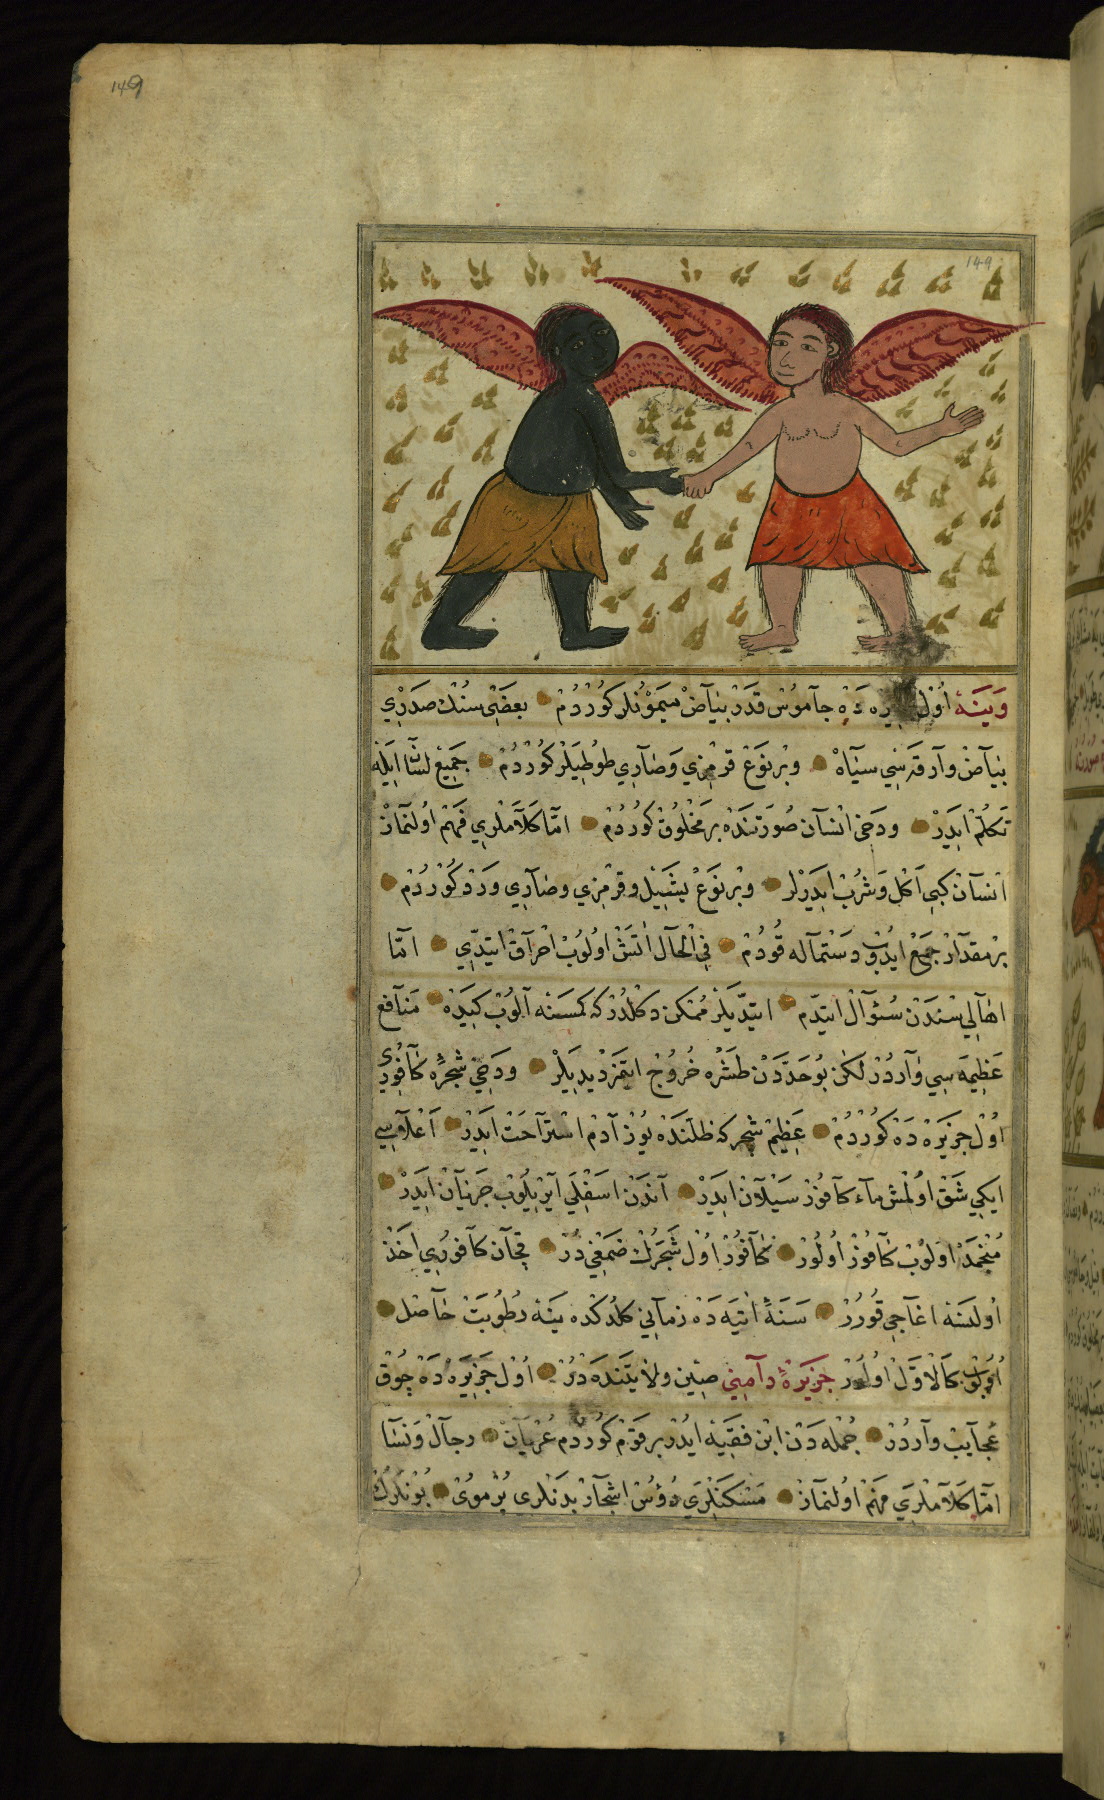 149
149
وَيَنَه اُوْل دَه جاَموُسْ قَدَرْ بَيَاضْ مَيْمُونْلَر كُورْدُمْ بَعْضِى سِنُكْ صَدْرِي
بَيَاضْ وآرقَه سِي سِيَاهْ وبِرْ نَوْعْ قِرْمِزِي وَصَارِي طُوطِيلَرْ كُورْدُمْ جَمِيعْ لِسَان اِيلَه
تَكَلُّمْ اِيدَرْ ودَخِى اِنْسَان صُورَتِنْدَه بِر مَخْلُوقْ كُورْدُمْ امّا كَلَامْلَرِي فَهْمْ اُولِنْمَازْ
اِنْسَانْ كِبِى اَكْل وَشُرْبْ اِيدَرْلَر وبِرْ نَوْعْ يَشِيلْ وقِرْمِزِي وصَارِي وَرْدْ كُورْدُمْ
بِرْ مِقْدَارْ جَمْعْ ايدُوبْ دَسْتِمَالَه قُودُمْ فِي الْحَالْ آتَشْ اُولُوبْ اِحْرَاقْ اِيتْدِي امّا
اهَالِي سِنْدَنْ سُؤَالْ ايتْدِم ايتْدِيلَرْ مُمْكِن دكلْدُرْ كه كِمْسَنَه آلُوبْ كِيدَه مَنَافِع
عَظِيمَه سِي وَارْدُرْ لَكِنْ بُو حَدّدَنْ طَشْرَه خُرُوجْ ايتْمَزْ دِيدِيلَرْ ودَخِي شَجَرَهٔ كَافُورِي
اُولْ جَزِيرَه دَه كُورْدُمْ عَظِيمْ شَجَر كه ظِلّنْدَه يُوزْ آدَمْ اِسْتِرَاحَتْ اِيدَرْ اَعْلَاسِي
ايكِي شَقْ اُولْمِشْ مآءِ كَافُورْ سَيَلَانْ اِيدَرْ آنْدَنْ اَسْفَلِي آيْرِيلُوبْ جَرَيَانْ اِيدَرْ
مُنْجَمَدْ اُولُوبْ كَافُورْ اُولُورْ كَافُورْ اُولْ شَجَرُكْ صَمْغِي دُرْ قَچَانْ كَافُورِي اَخْذ
اُولنْسَه اغَاجِي قُورُرْ سَنَهٔ آتِيَه دَه زَمَانِي كَلْدُكْدَه يَنَه رُطُوبَتْ حَاصِل
اُولُوبْ كَالْاَوَّلْ اُولُورْ جَزِيرَهٔ رَامِنِي صِينْ ولَايَتِنْدَه دُرْ اُولْ جَزِيرَه دَه چُوقْ
عَجَايِبْ وَارْدُرْ جُمْلَه دَن ابْن فَقِيَه ايدُرْ بِر قَوْمْ كُورْدُم عُرْيَانْ رِجَالْ وَنِسَا
امّا كَلَامْلَرِي فَهْمْ اُولِنْمَازْ مَسْكَنْلَرِي رُؤُسْ اَشْجَارْ بَدَنْلَرِي پُرْ مُويْ بُونْلَرُكْ